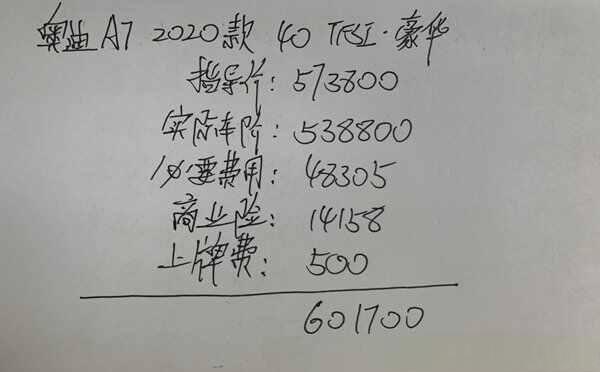 奥迪A7 2020款 40 TFSI·豪华
指导价:573800
实际车价:538800
必要费用:48305
商业险:14158
上牌费:500
601700